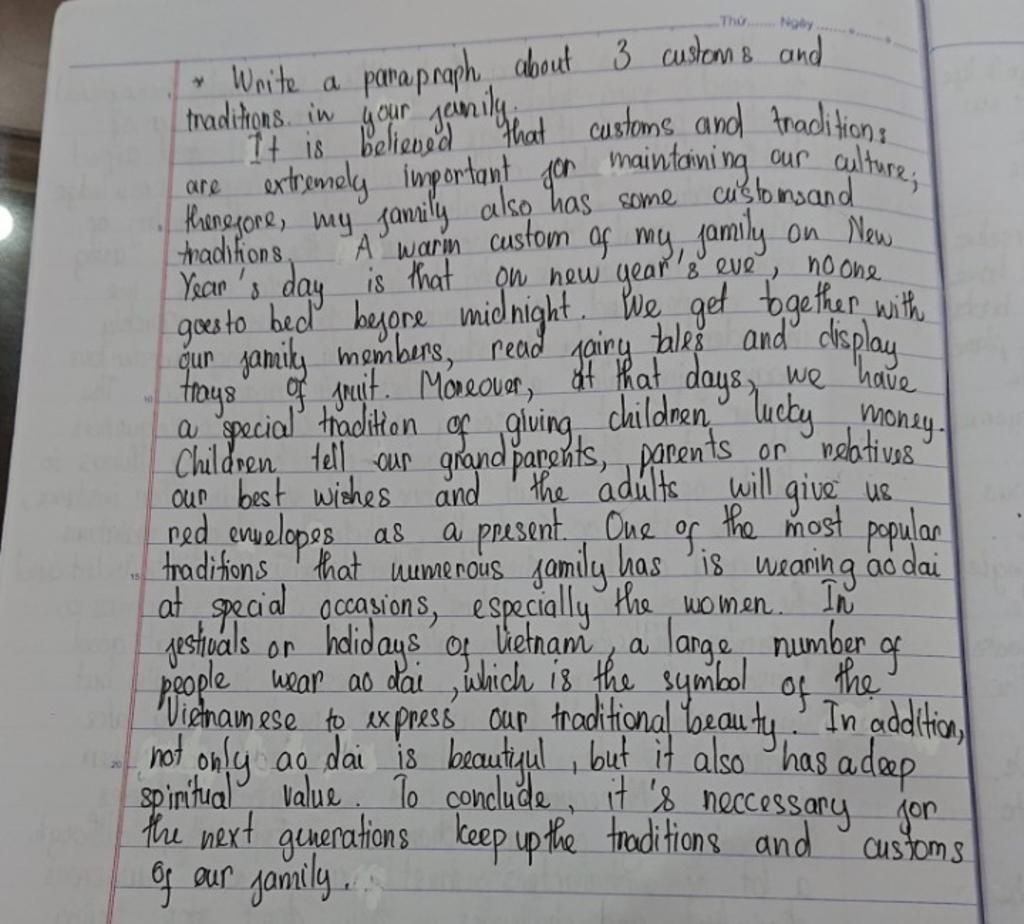 Thứ....... Ngày.............
* Write a parapraph about 3 customs and
traditions in your family.
It is believed that customs and traditions
are extremely important for maintaining our culture;
therefore, my family also has some customsand
traditions. A warm custom of my family on New
Year's day is that on new year's eve, no one
goesto bed before midnight. We get together with
our family members, read fairy tales and display
trays of fruit. Moreover, at that days, we have
a special tradition of giving children lucky money.
Children tell our grandparents, parents or relatives
our best wishes and the adults will give us
red envelopes as a present. One of the most popular
traditions that numerous family has is wearing ao dai
at special occasions, especially the women. In
festivals or holidays of Vietnam, a large number of
people wear ao dai, which is the symbol of the
Vietnamese to express our traditional beauty. In addition,
not only ao dai is beautiful, but it also has a deep
spiritual value. To conclude, it's neccessary for
the next generations keep up the traditions and customs
of our family...